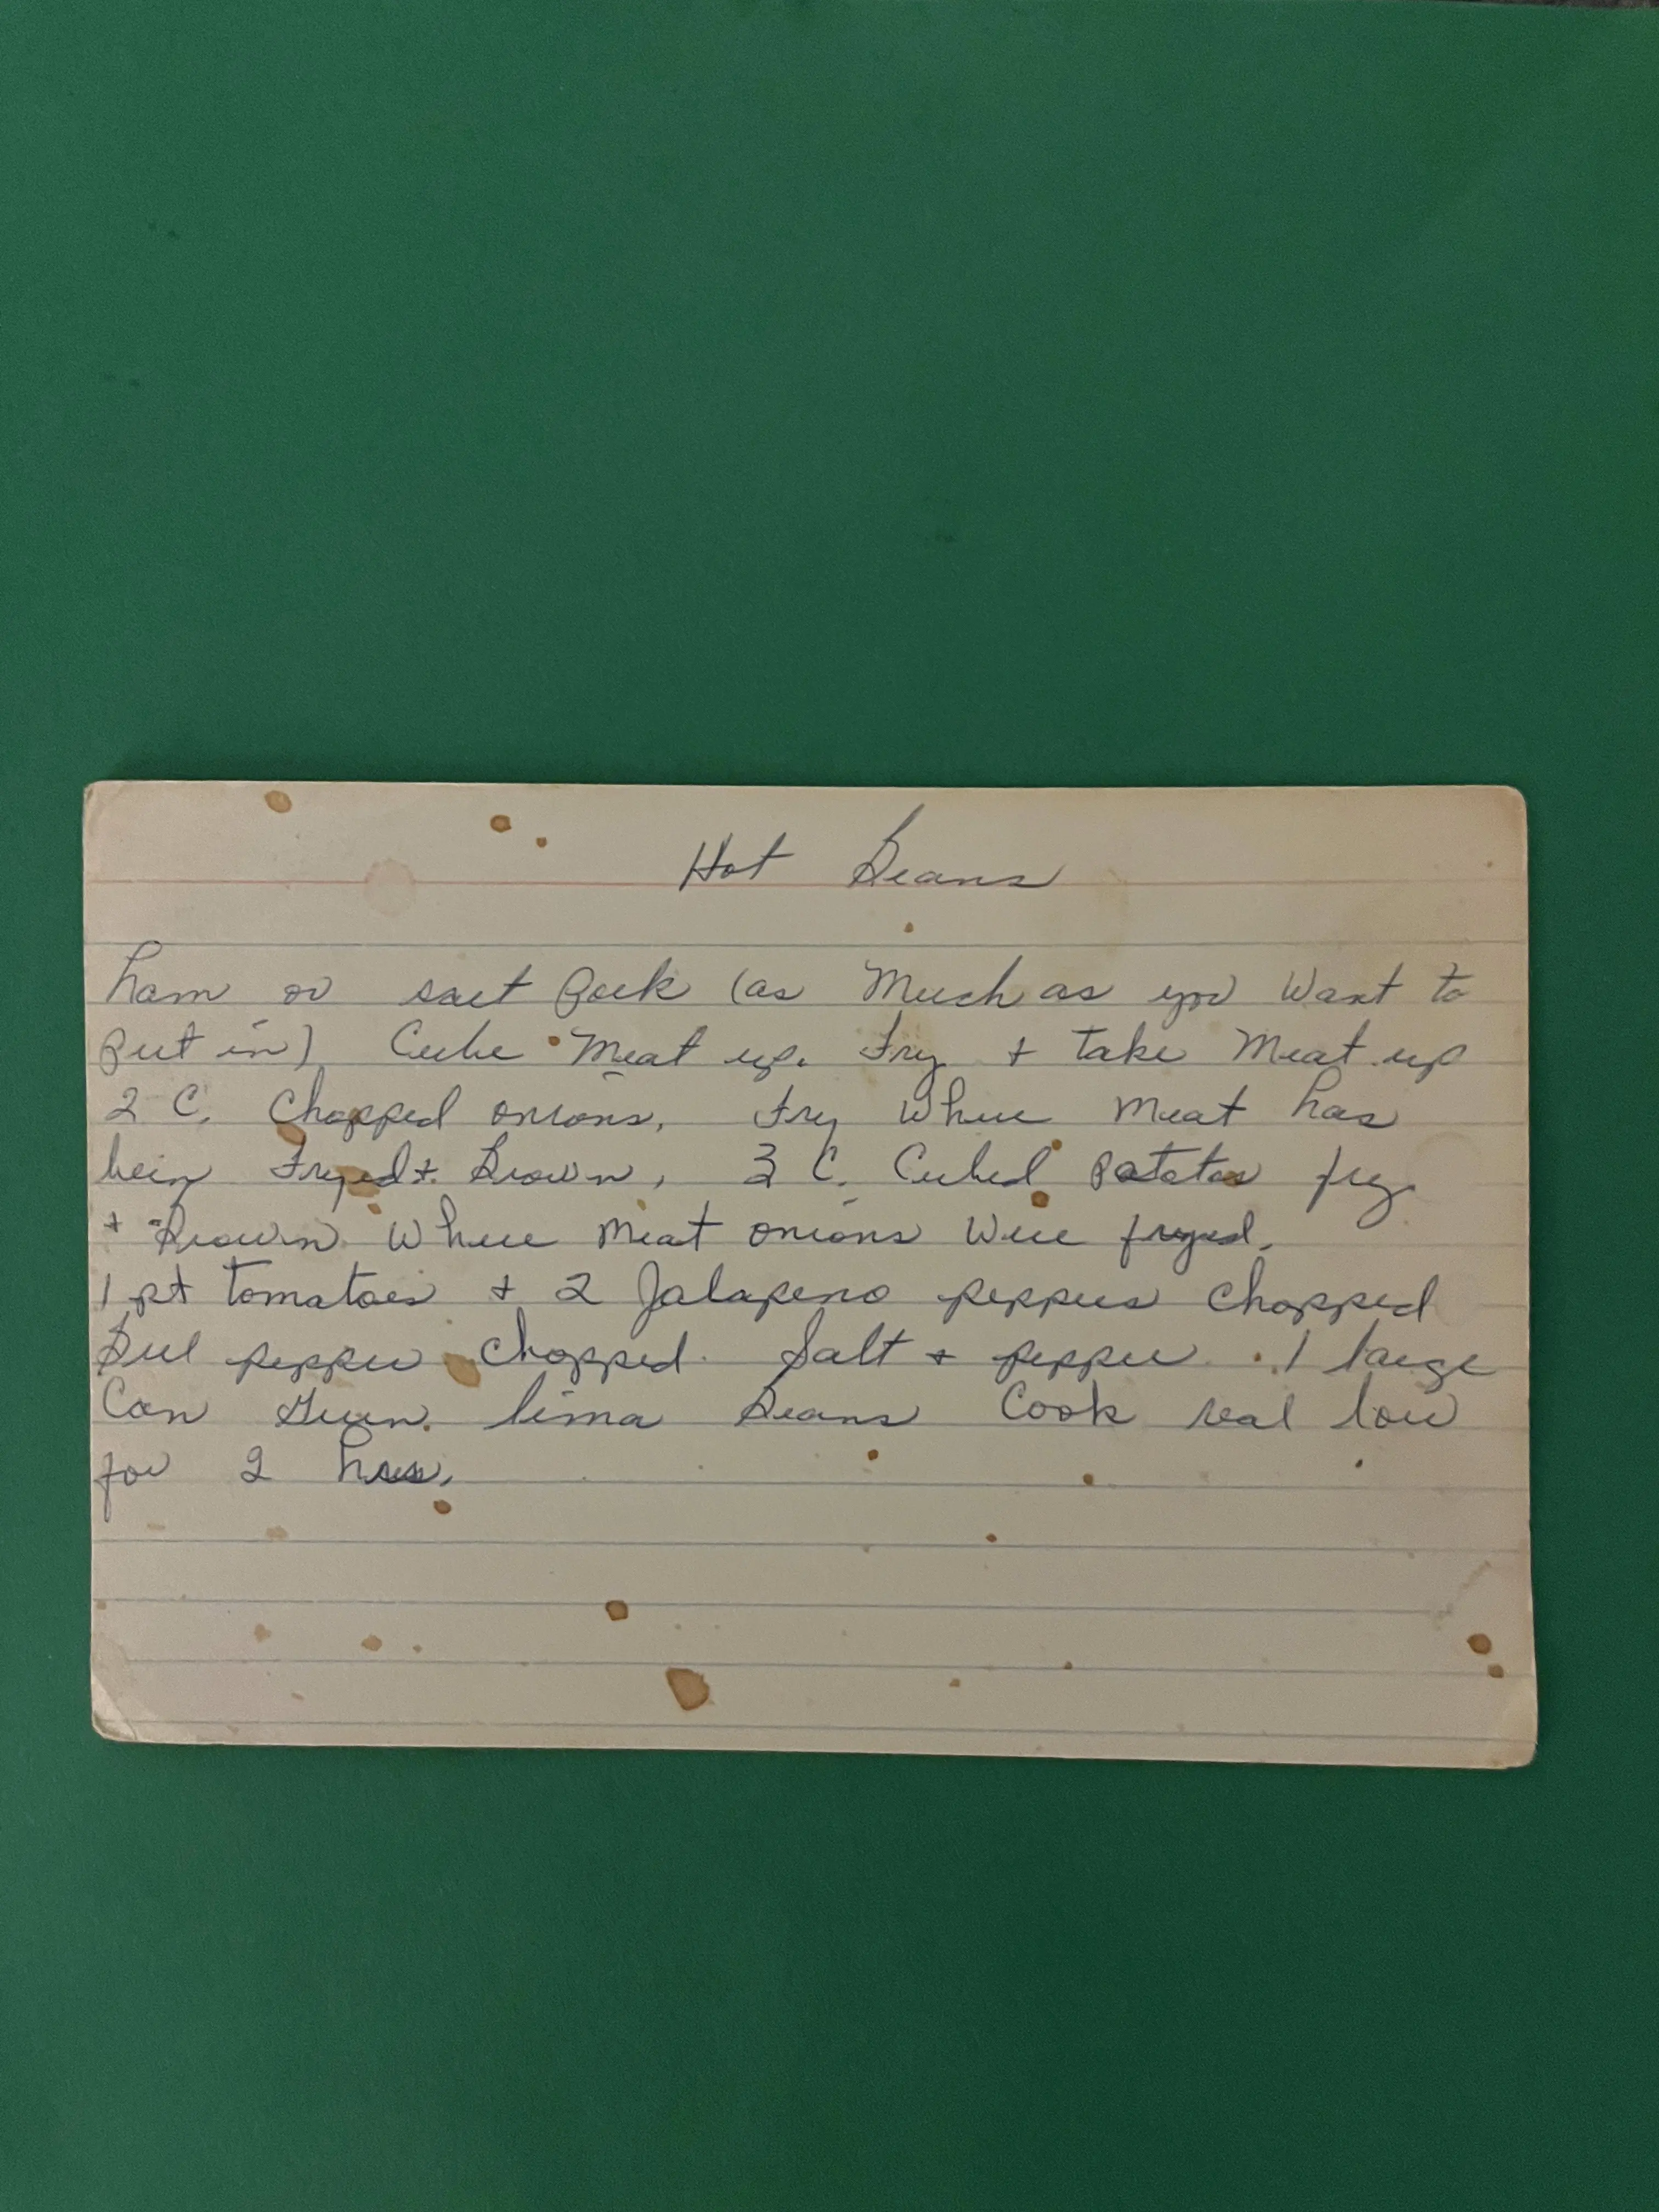 Hot Beans
ham or salt Pork (as Much as you Want to
Put in) Cube Meat up. Fry + take Meat up
2 C. Chopped onions, Fry Where Meat has
bein Fryed + Brown, 3 C. Cubed Potatos fry
+ Brown Where Meat onions Were fryed.
1 pt tomatoes + 2 Jalapeno peppers Chopped
Bell pepper Chopped. Salt + pepper. 1 large
Can Green lima Beans Cook real low
for 2 hrs.